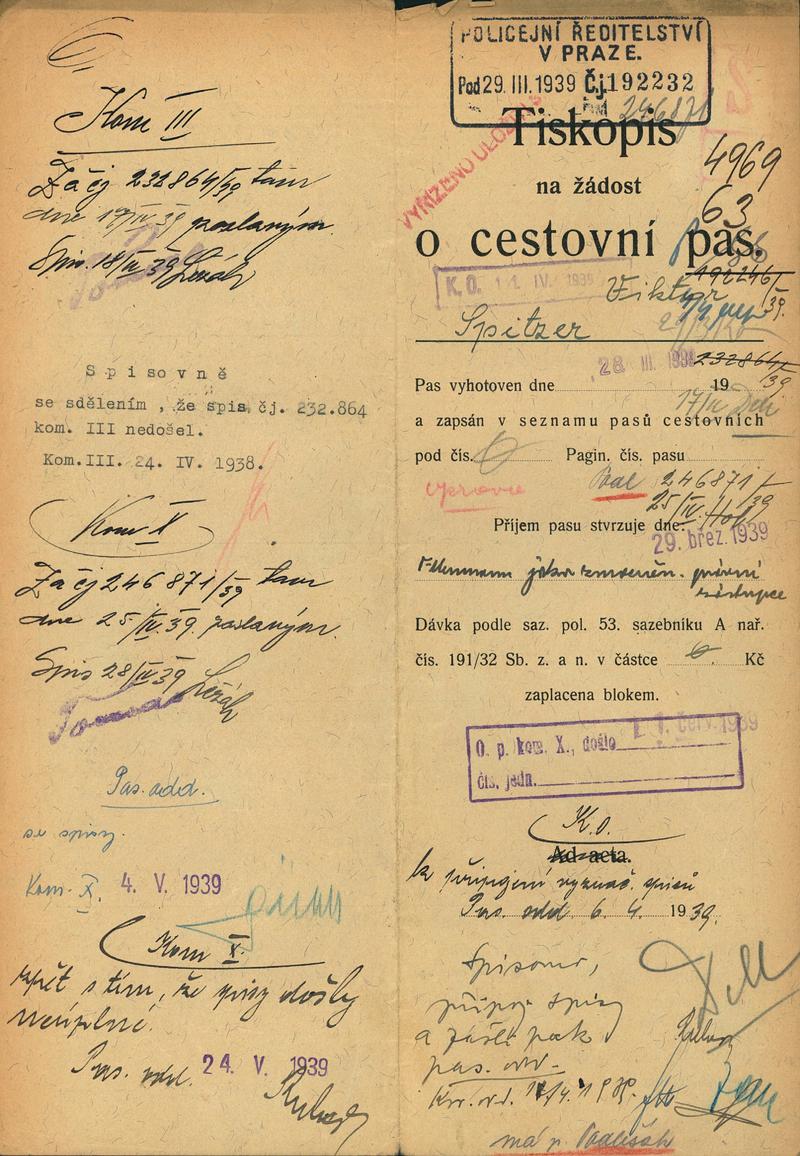 Kom III
Za čj 232864/39 tam
dne 19/IV 39 poslaným.
Spis. 18/IV 39
Spisovně
se sdělením , že spis čj. 232.864
kom. III nedošel.
Kom.III. 24. IV. 1938.
Kom X
Za čj 246 871/39 tam
dne 25/IV 39. poslaným.
Spis 28/IV 39
Pas. odd.
se spisy.
Kom. X. 4. V. 1939
Kom X.
zpět s tím, že spisy došly
neúplné.
Pas. odd. 24. V. 1939
POLICEJNÍ ŘEDITELSTVÍ
V PRAZE.
Pod 29. III. 1939 Čj. 192232
246871
VYŘÍZENO ULOŽIT
Tiskopis
na žádost
4969
63
o cestovní pas.
K. O. 11. IV. 1939
192246/39.
Viktor
Spitzer
28 III. 1939
232864/39
Pas vyhotoven dne 19
17/IV
a zapsán v seznamu pasů cestovních
pod čís. Pagin. čís. pasu
246871/39
25/IV.
Příjem pasu stvrzuje dne:
29. břez. 1939
jako zmocněn. právní
zástupce
Dávka podle saz. pol. 53. sazebníku A nař.
čís. 191/32 Sb. z. a n. v částce Kč
zaplacena blokem.
O. p. kom. X., došlo
1. červ. 1939
čís. jedn.
K.O.
Ad acta.
k připojení vyznač. spisů
Pas. odd 6. 4. 1939.
Spisovně,
připoj spisy
a zašli pak
pas. odd.
má p.